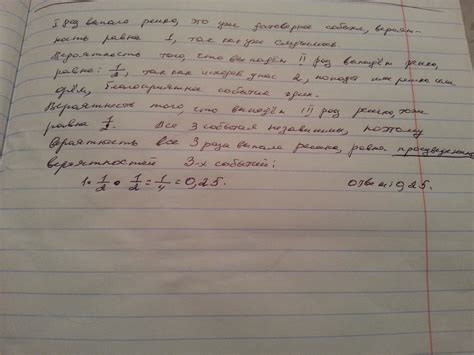 I раз выпала решка, это уже достоверное событие, вероят-
ность равна 1, так как уже случилось.
Вероятность того, что выпадет II раз выпадет решка,
равна: 1/2, так как исходов у нас 2, попадет или решка или
орёл, благоприятное событие одно.
Вероятность того, что выпадет III раз решка, тоже
равна 1/2. Все 3 события независимы, поэтому
вероятность все 3 раза выпала решка, равна произведению
вероятностей 3-х событий:
1 • 1/2 • 1/2 = 1/4 = 0,25. Ответ: 0,25.